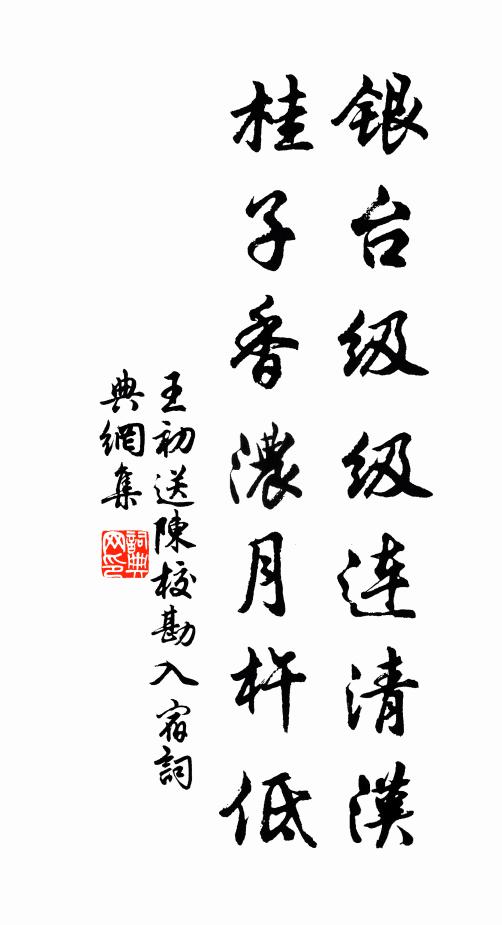 银台级级连清漠
桂子香濃月杵低
王初送陳校勘入宿詞
典網集
詞典网印